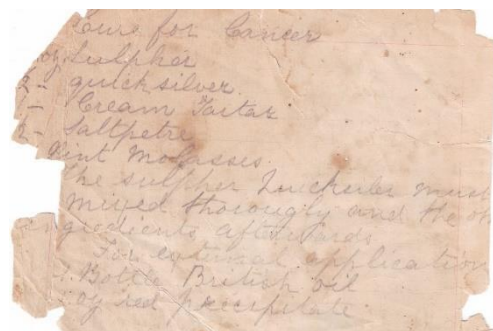 Cure for Cancer
oz sulpher
2 - quicksilver
1 - Cream Tartar
2 - Saltpetre
pint Molasses.
The sulpher must
mixed thorougly and the
ingredients afterwards
For external application
1 Bottle British oil
oz red precipitate